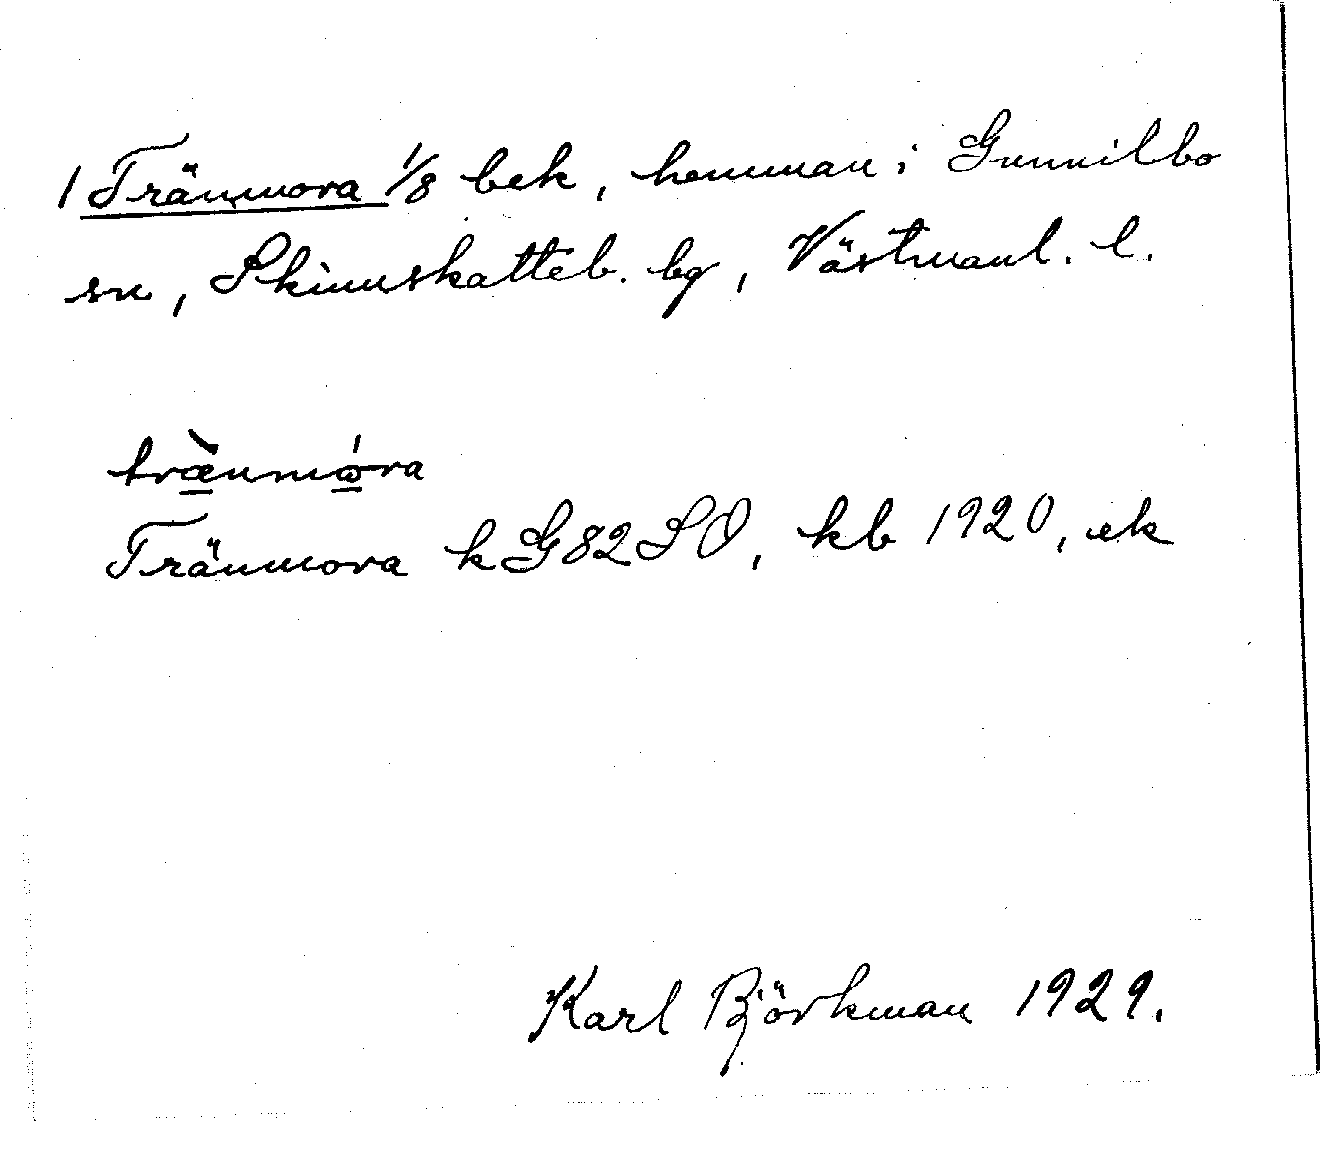 1 Tränmora 1/8 bek, hemman i Gunnilbo
sn, Skinnskatteb. bg, Västmanl. l.
træ̀nmώra
Tränmora k G82SO, kb 1920, ek
Karl Björkman 1929.